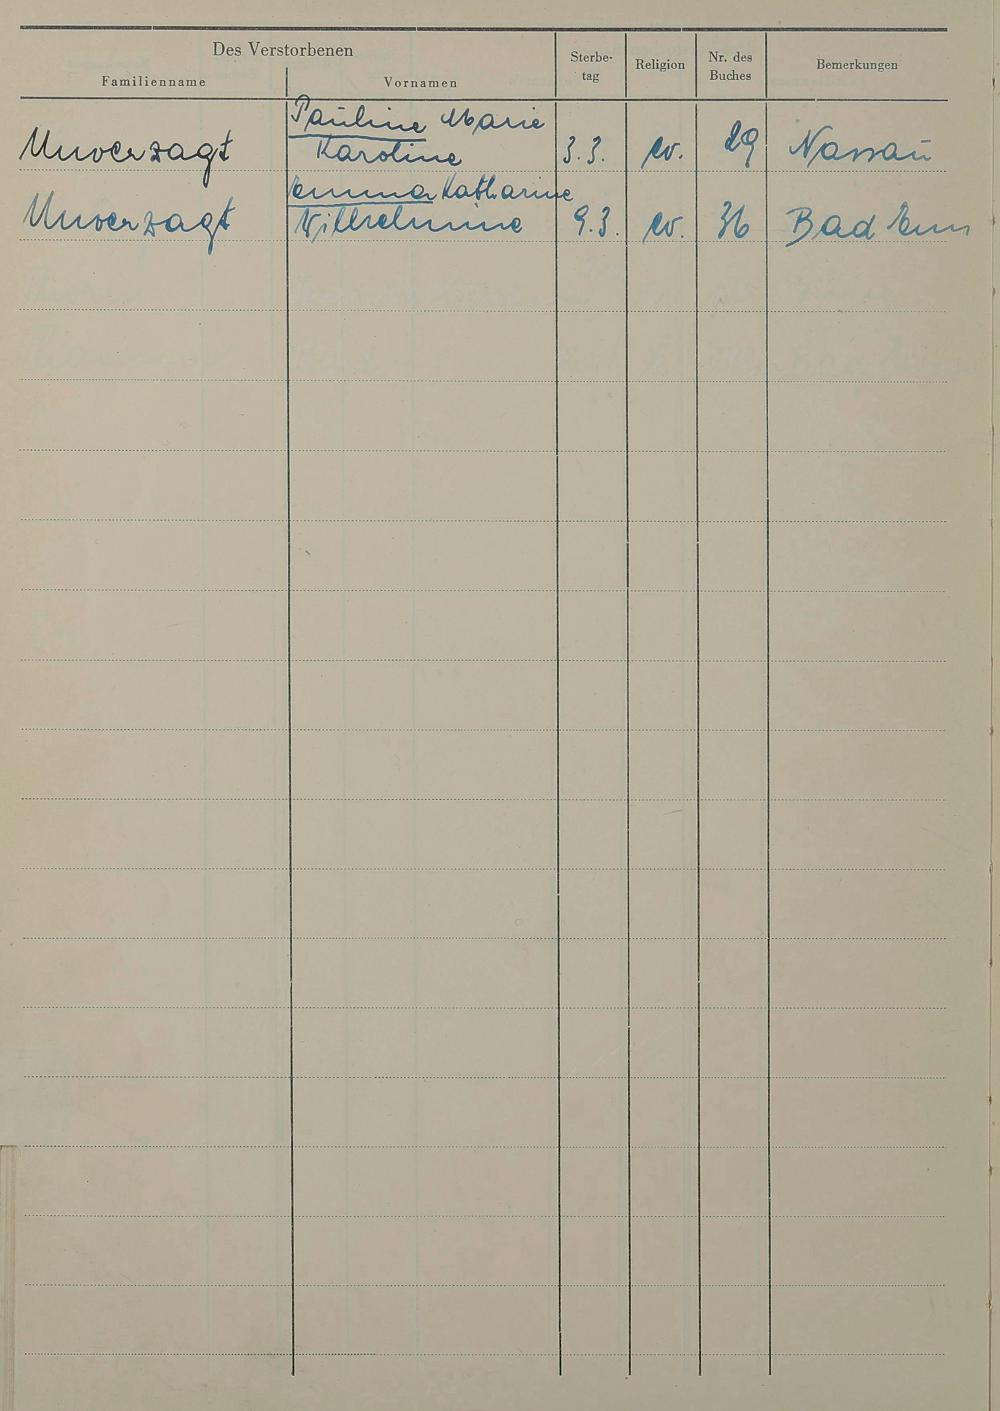 Des Verstorbenen
Familienname Vornamen Sterbe-
tag Religion Nr. des
Buches Bemerkungen
Pauline Marie
Unverzagt Karoline 3.3. ev. 29 Nassau
Emma Katharine
Unverzagt Wilhelmine 9.3. ev. 36 Bad Ems